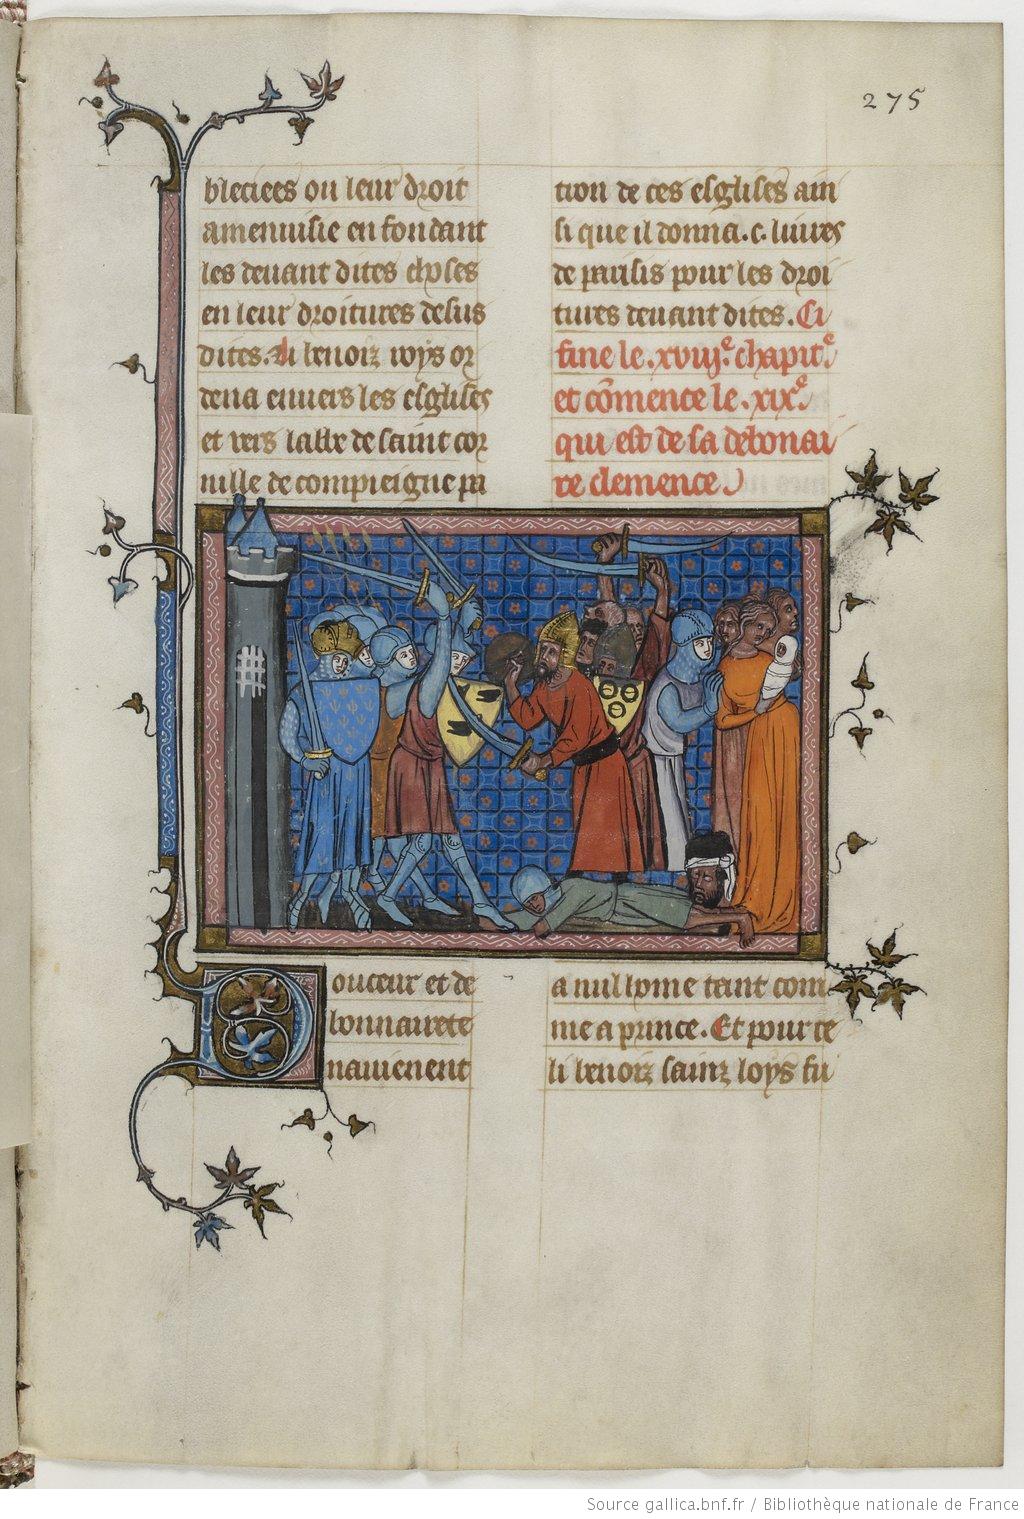 275
bleciees ou leur droit
amenuisie en fondant
les deuant dites choses
en leur droitures desus
dites. Li benoiz roys or
dena enuers les esglises
et vers labbe de saint cor
nille de compieigne pa
tion de ces esglises ain
si que il donna .c. liures
de parisis pour les droi
tures deuant dites. Ci
fine le .xviij.e chapit.e
et cōmence le .xix.e
qui est de sa debonai
re clemence
Douceur et de
bonnairete
nauienent
a nul home tant com
me a prince. Et pour ce
li benoiz sainz loys fu
Source gallica.bnf.fr / Bibliothèque nationale de France